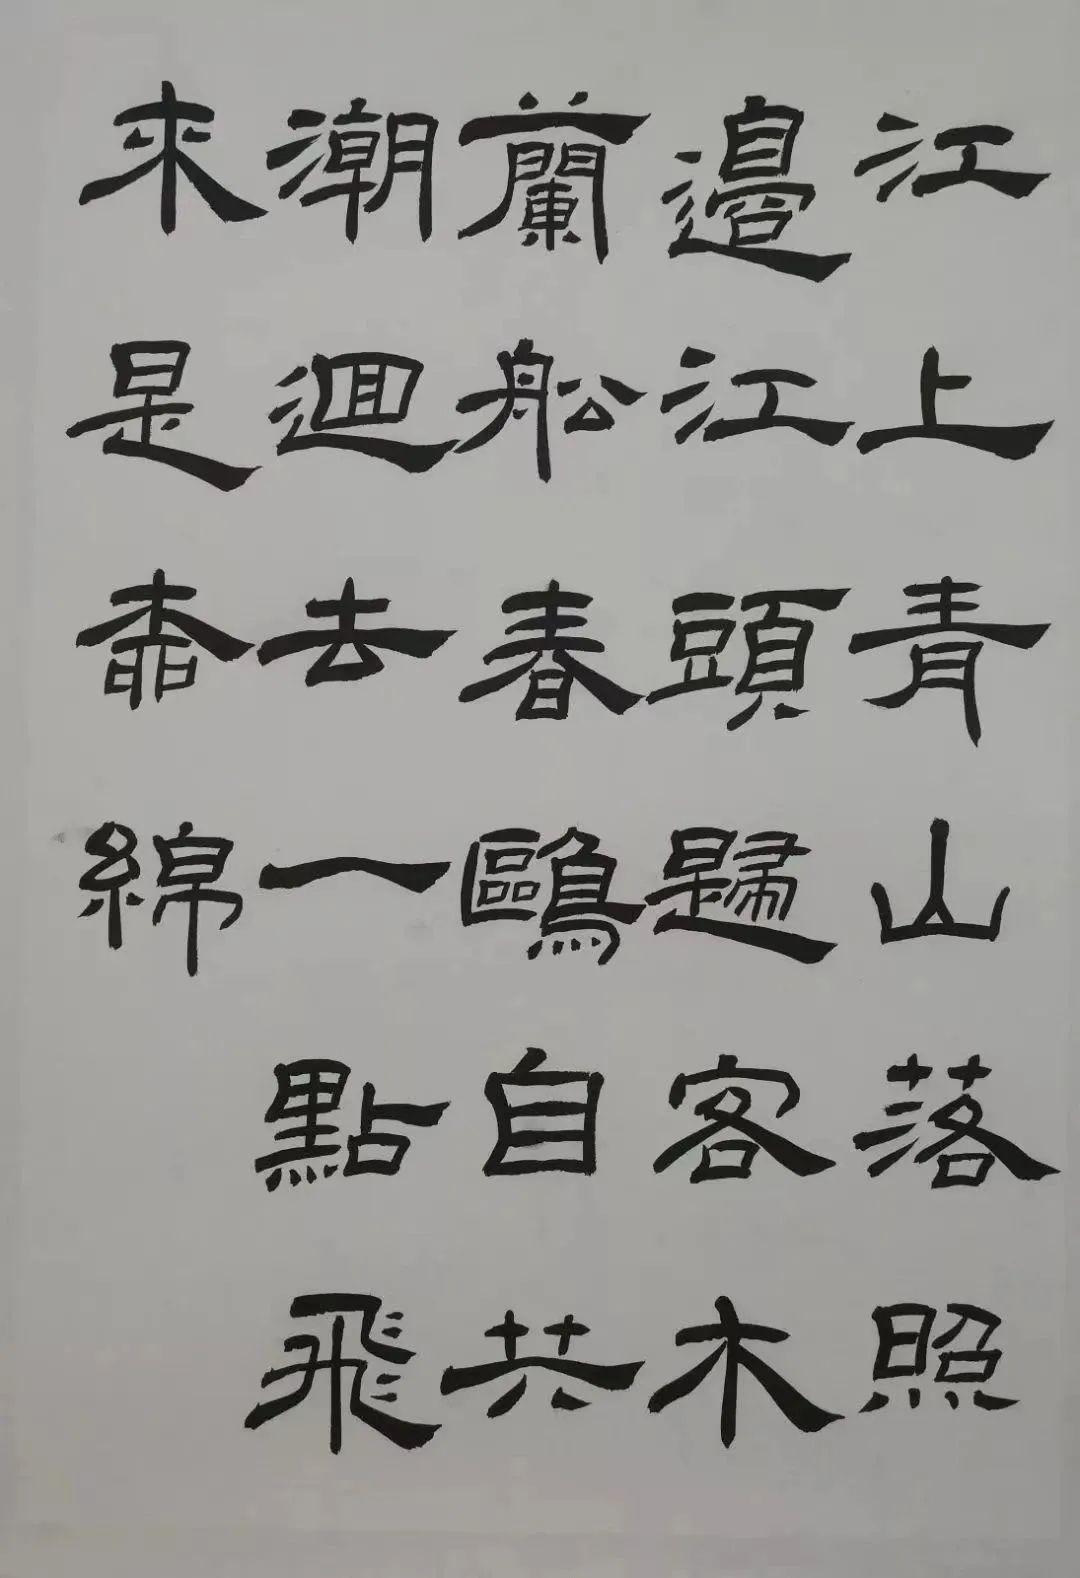 江上青山落照
邊江頭歸客木
蘭舩春鷗自共
潮迴去一點飛
來是桺綿